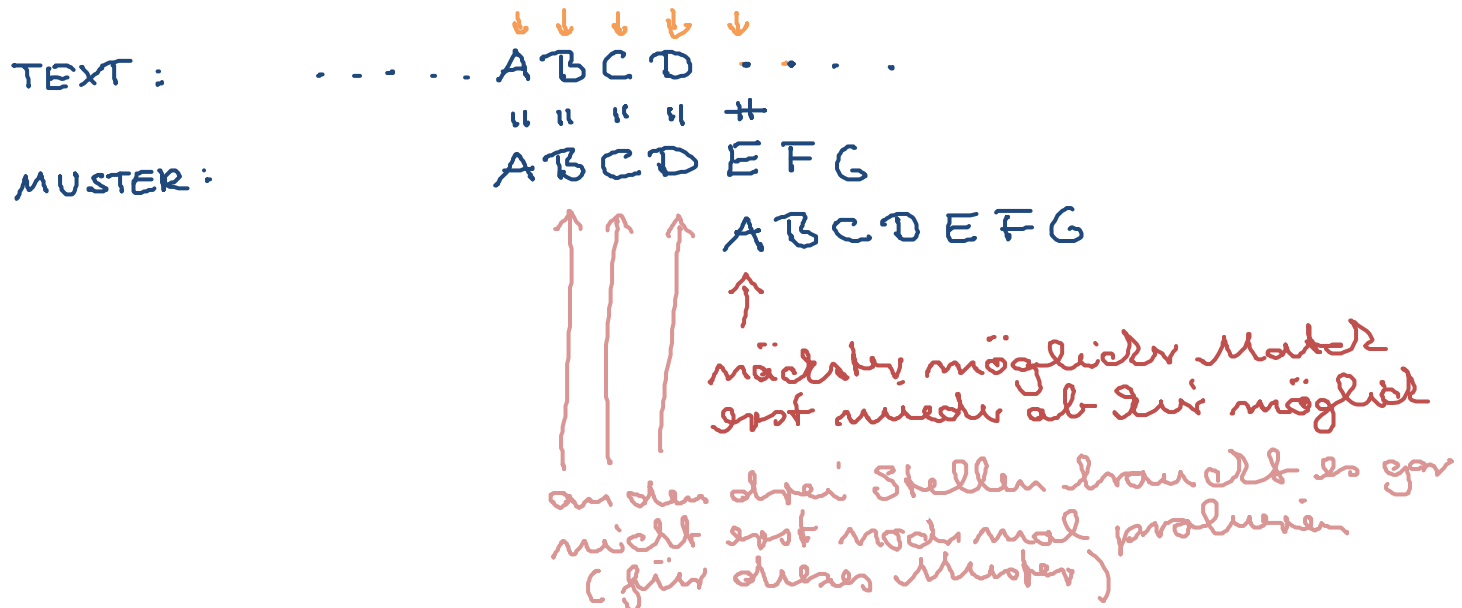 TEXT : . . . . . A B C D . . . .
" " " " ≠
MUSTER: A B C D E F G
A B C D E F G
nächster möglicher Match
erst wieder ab hier möglich
an den drei Stellen braucht es gar
nicht erst nochmal probieren
(für dieses Muster)